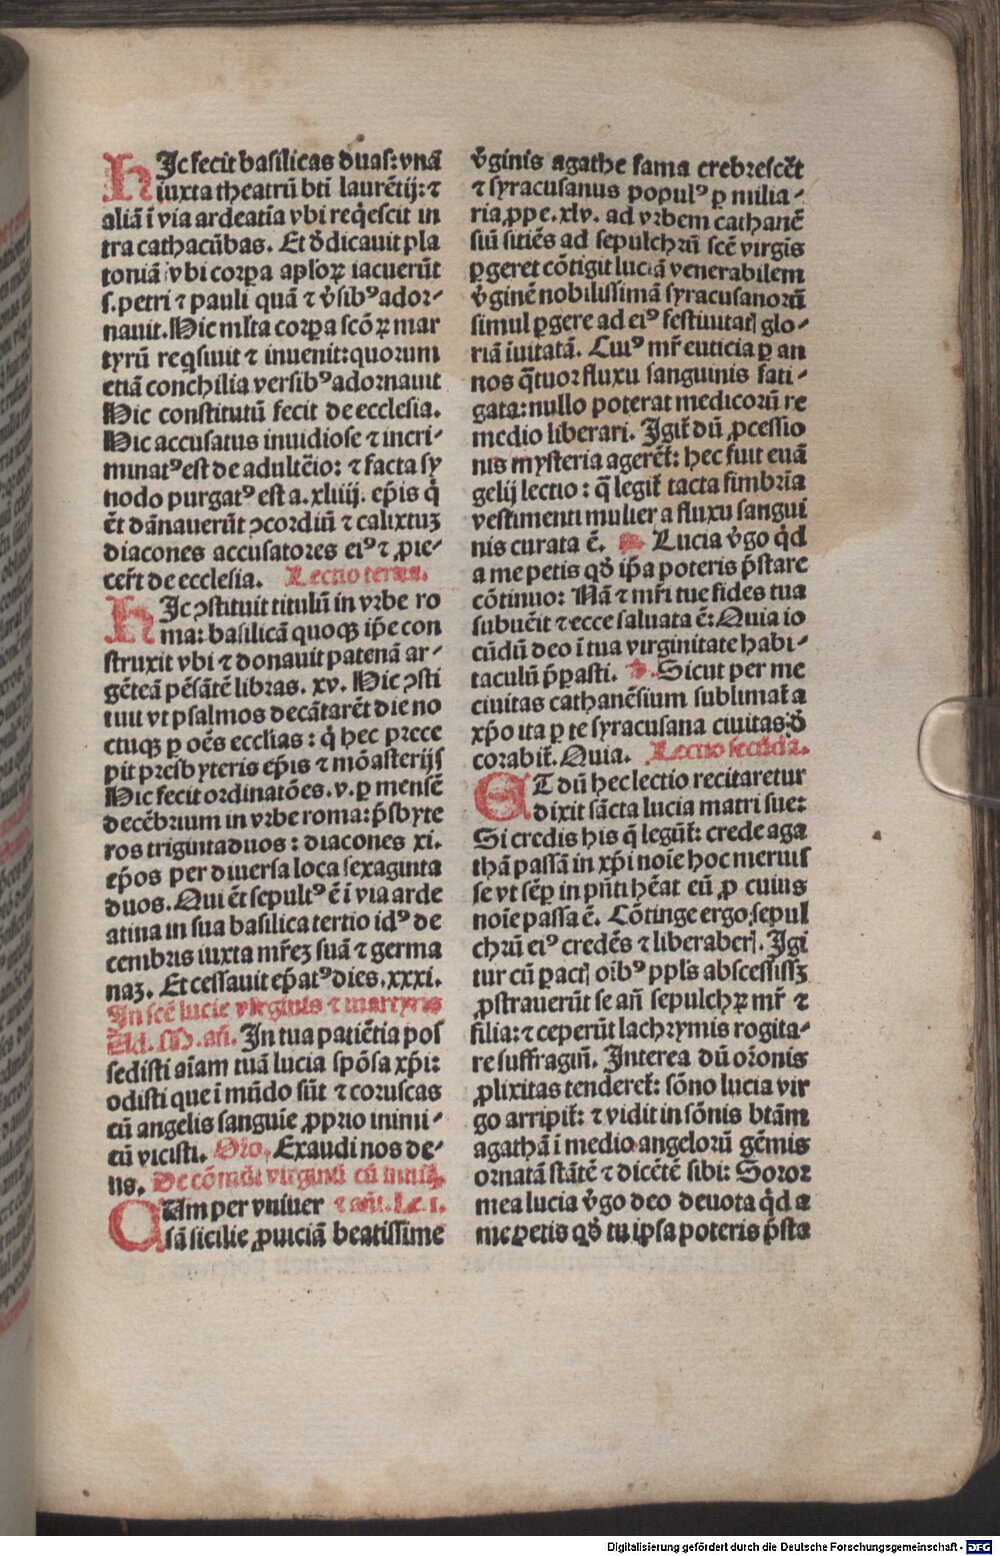 HJc fecit basilicas duas: vnā
iuxta theatrū bti laurētij: ⁊
aliā ī via ardeatīa vbi reqͥescit in
tra cathacūbas. Et ꝺ̄dicauit pla
toniā vbi corꝑa apl'oꝝ iacuerūt
s. petri ⁊ pauli quā ⁊ v̓sibꝰ ador-
nauit. Hic ml̓ta corꝑa scōꝝ mar
tyrū reqͥsiuit ⁊ inuenit: quorum
etiā conchilia versibꝰ adornauit
Hic constitutū fecit de ecclesia.
Hic accusatus inuidiose ⁊ incri-
minatꝰ est de adultēio: ⁊ facta sy
nodo purgatꝰ est a. xliiij. ep̄is qͥ
ēt dānauerūt ꝯcordiū ⁊ calixtuꝫ
diacones accusatores eiꝰ ⁊ ꝓie-
cer̄t de ecclesia. Lectio tertia.
HJc ꝯstituit titulū in vrbe ro
ma: basilicā quoqꝫ ip̄e con
struxit vbi ⁊ donauit patenā ar-
gēteā pēsātē libras. xv. Hic ꝯsti
tuit vt psalmos decātarēt die no
ctuqꝫ ꝑ oēs ecclīas: qͥ hec prece
pit presbyteris ep̄is ⁊ mōasterijs
Hic fecit ordinatōes. v. ꝑ mensē
decēbrium in vrbe roma: p̄sbyte
ros trigintaduos: diacones xi.
ep̄os per diuersa loca sexaginta
duos. Qui ēt sepultꝰ ē ī via arde
atina in sua basilica tertio idꝰ de
cembris iuxta mr̄eꝫ suā ⁊ germa
naꝫ. Et cessauit ep̄atꝰ dies. xxxi.
In scē lucie virginis ⁊ martyris
Ad. M. añ. In tua patiētia pos
sedisti aīam tuā lucia spōsa xp̄i:
odisti que ī mūdo sūt ⁊ coruscas
cū angelis sanguīe ꝓprio inimi-
cū vicisti. Oro. Exaudi nos de-
us. De cōmūi virginū cū inuit.
CUm per vniuer ⁊ añ. Lc. i.
sā sicilie ꝓuīciā beatissime
v̓ginis agathe fama crebrescēt
⁊ syracusanus populꝰ ꝑ milia-
ria ꝓpe. xlv. ad vrbem cathanē
siū sitiēs ad sepulchrū scē virgīs
ꝑgeret cōtigit luciā venerabilem
v̓ginē nobilissimā syracusanorū
simul ꝑgere ad eiꝰ festiuitatꝭ glo-
riā īuitatā. Cuiꝰ mr̄ euticia ꝑ an
nos qͣtuor fluxu sanguinis fati-
gata: nullo poterat medicorū re
medio liberari. Jgit̄ dū ꝓcessio
nis mysteria agerēt̄: hec fuit euā
gelij lectio: q̄ legit̄ tacta fimbria
vestimenti mulier a fluxu sangui
nis curata ē. R. Lucia v̓go qͥd
a me petis qꝺ̓ ip̄a poteris p̄stare
cōtinuo: Nā ⁊ mr̄i tue fides tua
subuēit ⁊ ecce saluata ē: Quia io
cūdū deo ī tua virginitate habi-
taculū p̄ꝑasti. V. Sicut per me
ciuitas cathanēsium sublimat̄ a
xp̄o ita ꝑ te syracusana ciuitas ꝺ̄
corabit̄. Quia. Lectio secūda.
ET dū hec lectio recitaretur
dixit sācta lucia matri sue:
Si credis his q̄ legūt̄: crede aga
thā passā in xp̄i noīe hoc meruis
se vt sēꝑ in pn̄ti hēat eū ꝓ cuius
noīe passa ē. Cōtinge ergo sepul
chrū eiꝰ credēs ⁊ liberaberꝭ. Jgi
tur cū ꝑactꝭ oībꝰ ppl̓s abscessissꝫ
ꝓstrauerūt se añ sepulchꝝ mr̄ ⁊
filia: ⁊ ceperūt lachrymis rogita-
re suffragiū. Jnterea dū or̄onis
ꝓlixitas tenderet̄: sōno lucia vir
go arripit̄: ⁊ vidit in sōnis btām
agathā ī medio angelorū gēmis
ornatā stātē ⁊ dicētē sibi: Soror
mea lucia v̓go deo deuota qͥd a
me petis qꝺ̓ tu ipsa poteris p̄sta
Digitalisierung gefördert durch die Deutsche Forschungsgemeinschaft - DFG